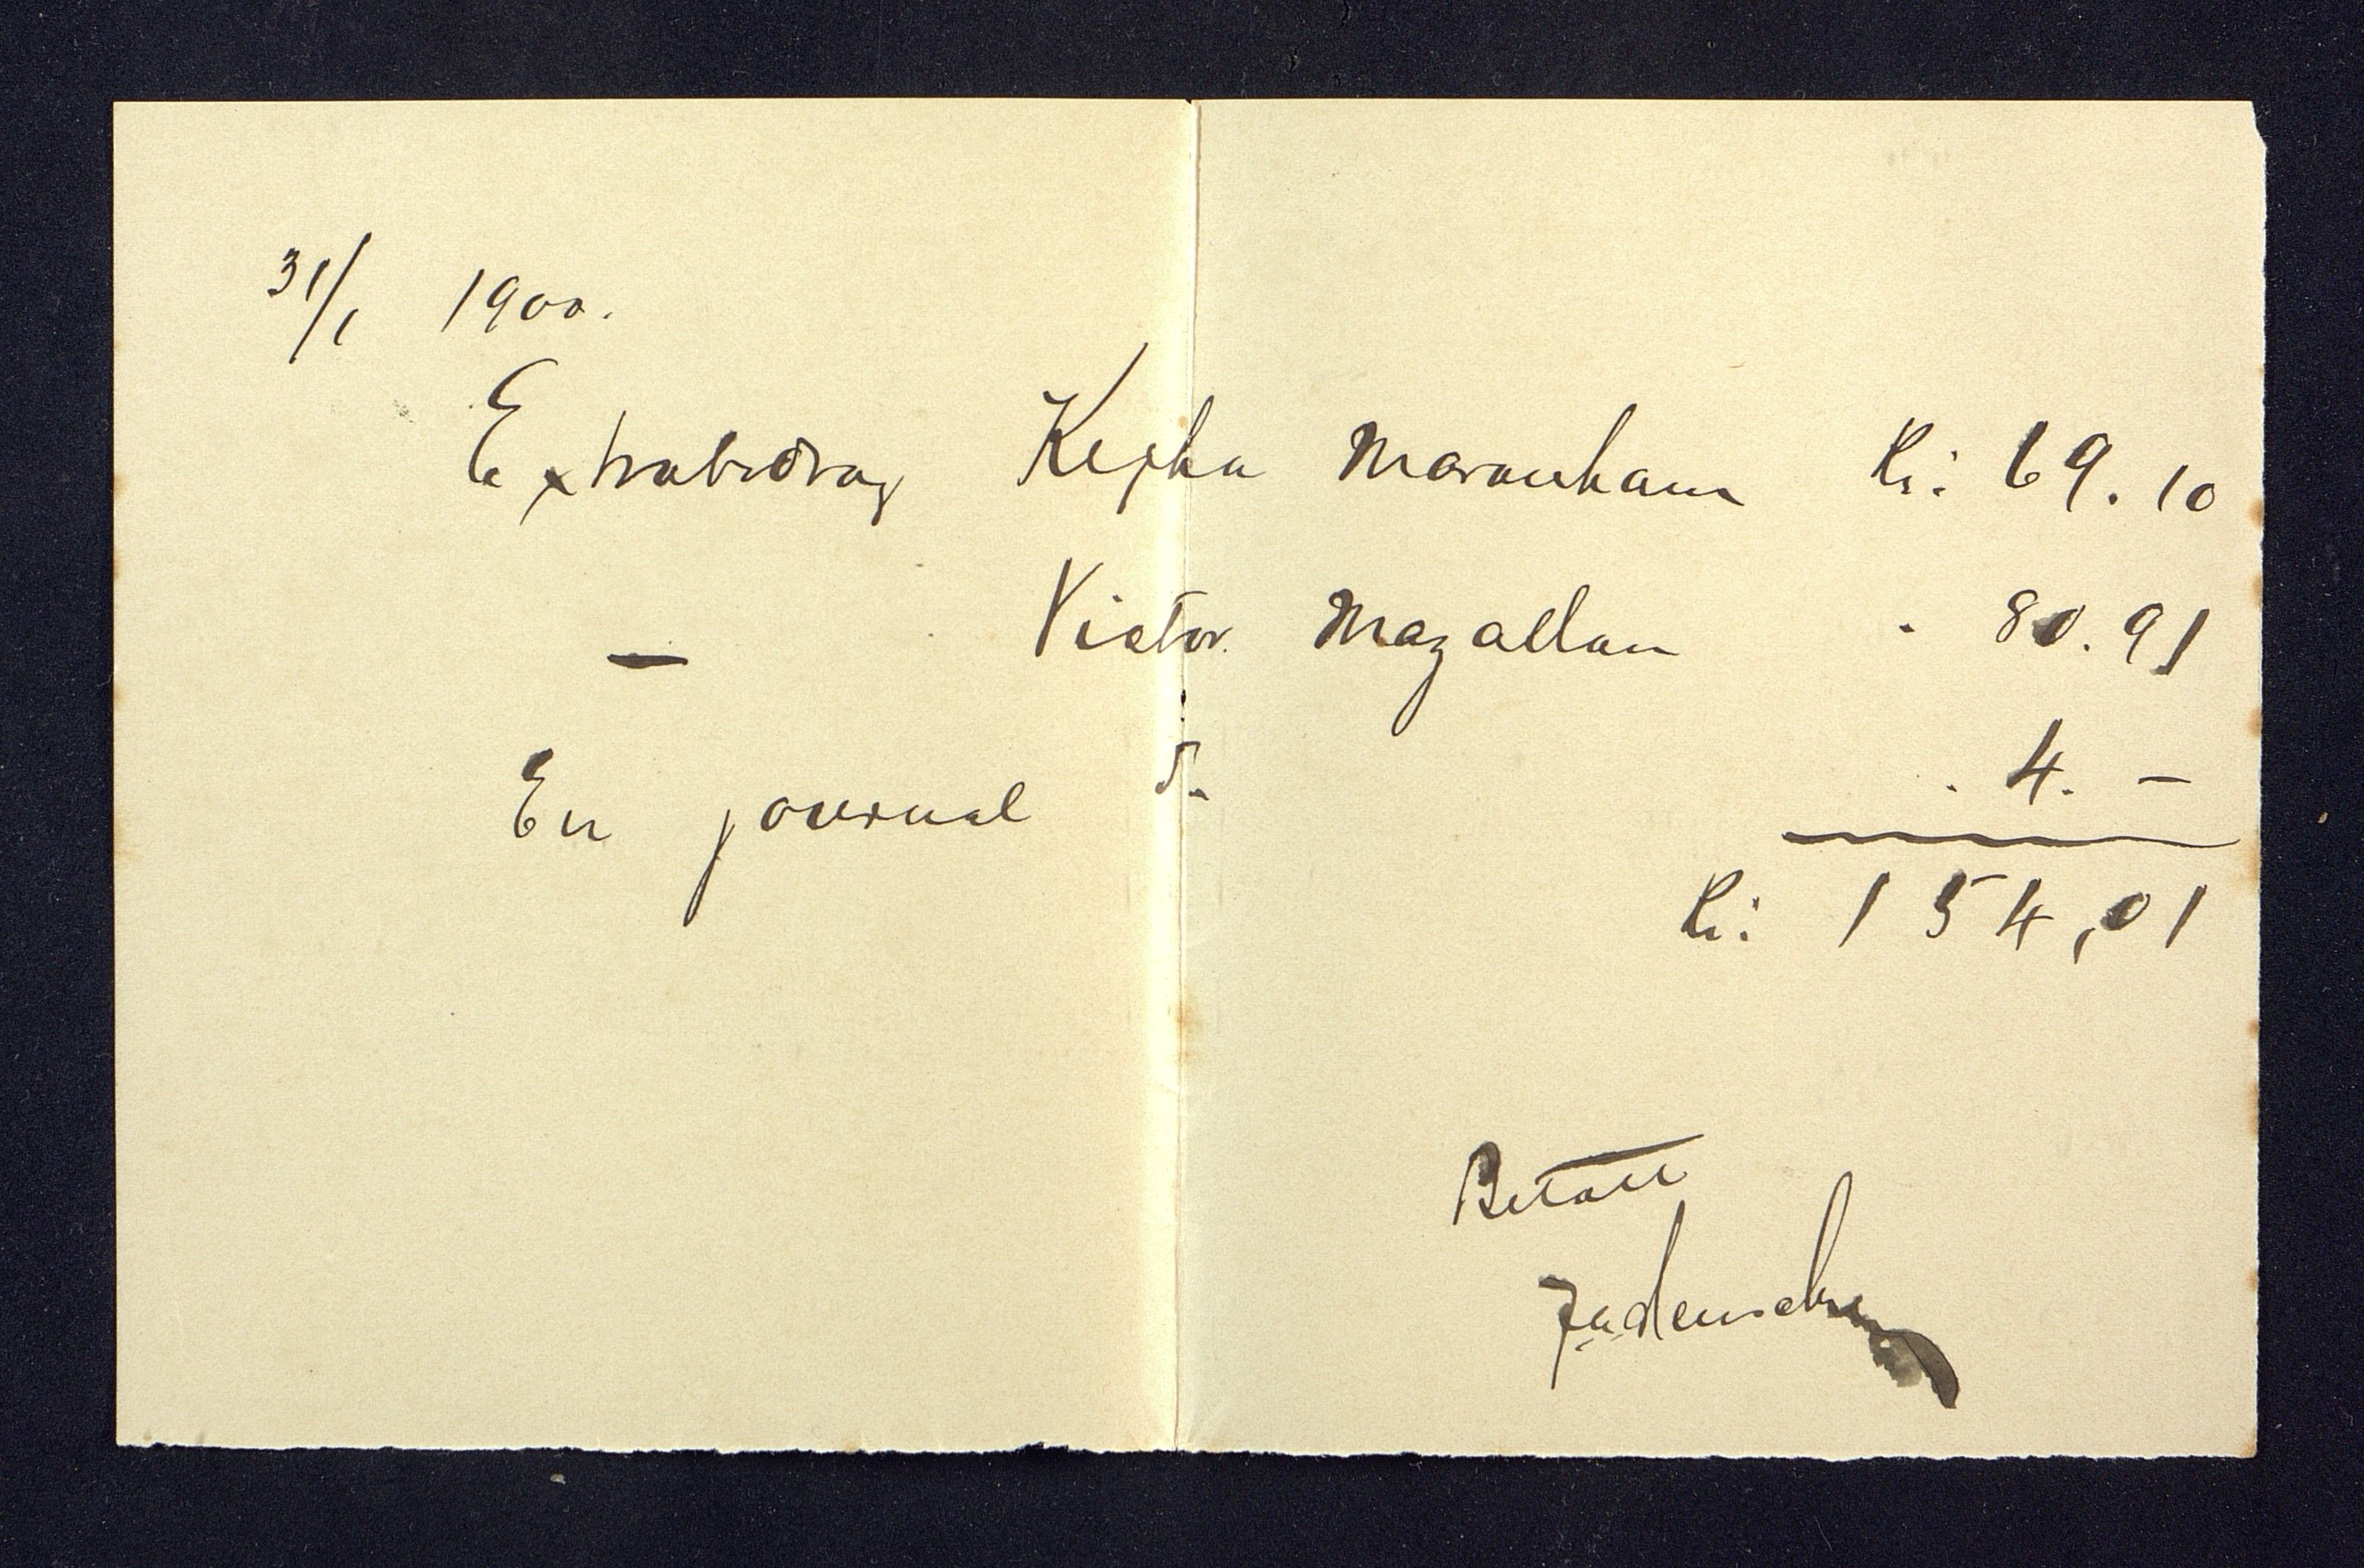 31/1 1900.
Extrabidrag Kepha Maranham Kr: 69.10
— Victor Magallan . 80.91
En journal 5. . 4. —
Kr: 154,01
Betalt